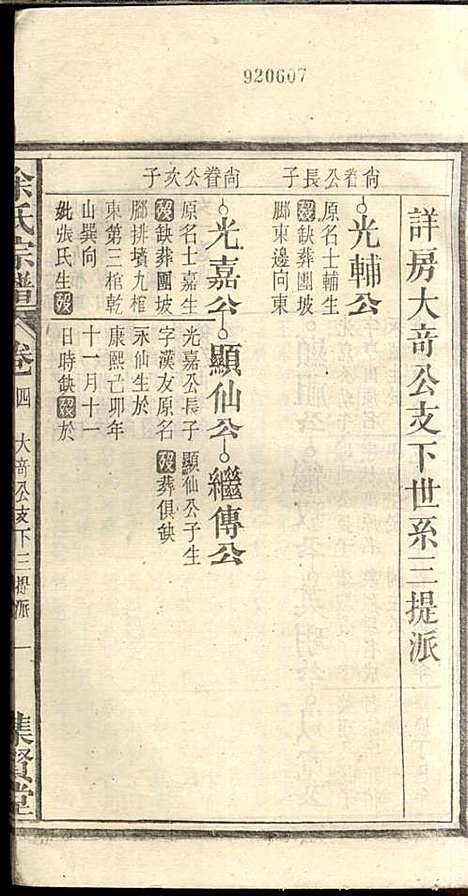 920607
詳房大奇公支下世系三提派
尙眷公長子
光輔公
原名士輔生
歿缺葬團坡
脚東邊向東
尙眷公次子
光嘉公
原名士嘉生
歿缺葬團坡
脚排墳九棺
東第三棺乾
山巽向
妣張氏生歿
顯仙公
光嘉公長子
字漢友原名
永仙生於
康熙己卯年
十一月十一
日時缺歿於
繼傳公
顯仙公子生
歿葬俱缺
氏宗譜
卷四
大奇公支下三提派
一
集賢堂